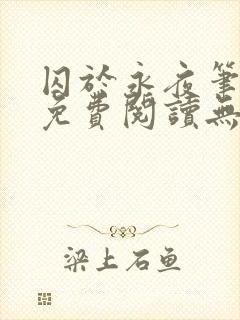 囚於永夜筆
免費閱讀無
梁上石鱼